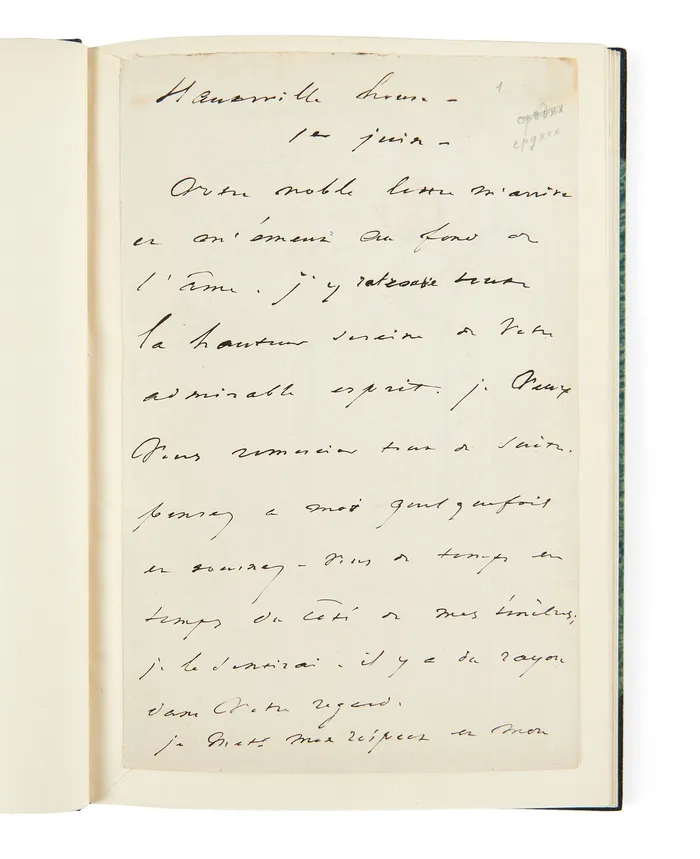 Hauteville house –
1er juin –
1.
Votre noble lettre m'arrive
et m'émeut au fond de
l'âme. j'y retrouve toute
la hauteur sereine de votre
admirable esprit. je veux
vous remercier tout de suite.
pensez à moi quelquefois
et tournez-vous de temps en
temps du côté de mes ténèbres;
je le sentirai. il y a du rayon
dans votre regard.
je mets mon respect et mon